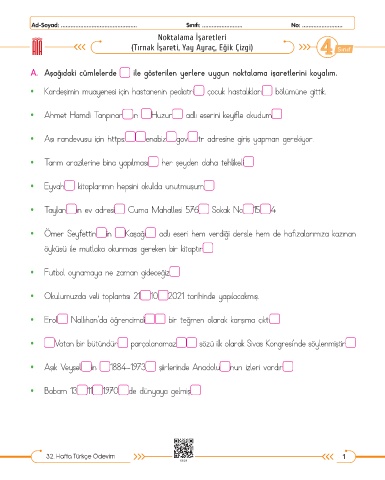 Ad-Soyad: ................................................ Sınıfı: ........................ No: ........................
Noktalama İşaretleri
(Tırnak İşareti, Yay Ayraç, Eğik Çizgi)
4. Sınıf
A. Aşağıdaki cümlelerde □ ile gösterilen yerlere uygun noktalama işaretlerini koyalım.
• Kardeşimin muayenesi için hastanenin pediatri□ çocuk hastalıkları□ bölümüne gittik.
• Ahmet Hamdi Tanpınar□ın □Huzur□ adlı eserini keyifle okudum□
• Aşı randevusu için https□□□enabiz□gov□tr adresine giriş yapman gerekiyor.
• Tarım arazilerine bina yapılması□ her şeyden daha tehlikeli□
• Eyvah□ kitaplarımın hepsini okulda unutmuşum□
• Taylan□ın ev adresi□ Cuma Mahallesi 576□ Sokak No□15□4
• Ömer Seyfettin□in □Kaşağı□ adlı eseri hem verdiği dersle hem de hafızalarımıza kazınan
öyküsü ile mutlaka okunması gereken bir kitaptır□
• Futbol oynamaya ne zaman gideceğiz□
• Okulumuzda veli toplantısı 21□10□2021 tarihinde yapılacakmış.
• Erol□ Nallıhan'da öğrencimdi□□ bir teğmen olarak karşıma çıktı□
• □Vatan bir bütündür□ parçalanamaz□□ sözü ilk olarak Sivas Kongresi'nde söylenmiştir□
• Aşık Veysel□in □1884-1973□ şiirlerinde Anadolu□nun izleri vardır□
• Babam 13□11□1970□de dünyaya gelmiş□
32. Hafta Türkçe Ödevim
1